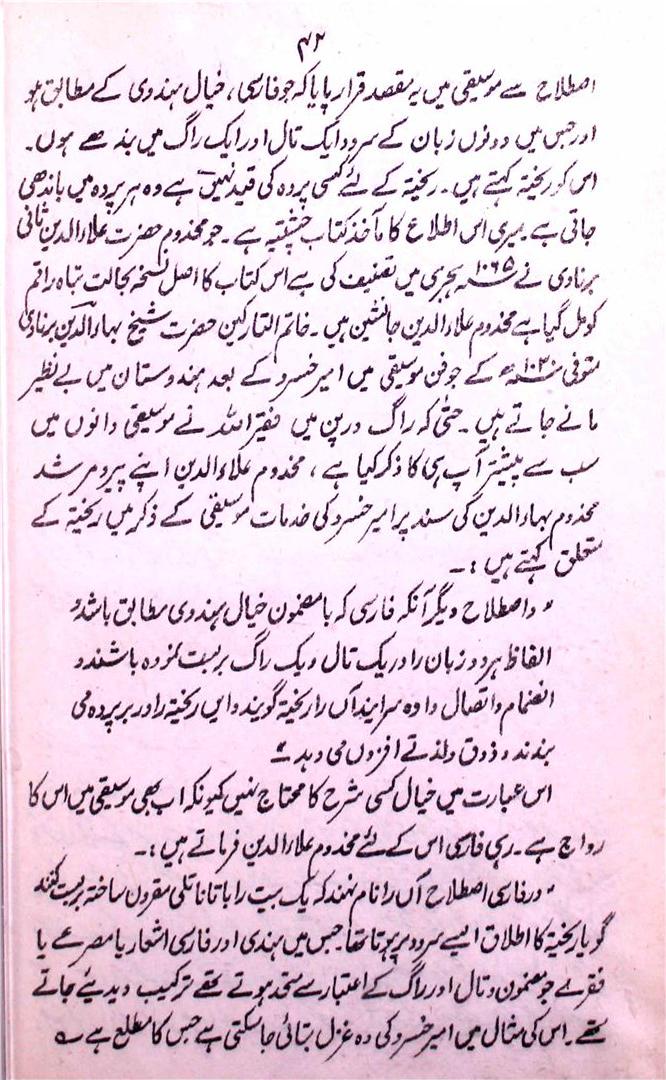 ۴۲
اصطلاح سے موسیقی میں یہ مقصد قرار پایا کہ جو فارسی، خیال ہندوی کے مطابق ہو
اور جس میں دونوں زبان کے سرود ایک تال اور ایک راگ میں بندھے ہوں۔
اس کو ریختہ کہتے ہیں۔ ریختہ کے لئے کسی پردہ کی قید نہیں ہے وہ ہر پردہ میں باندھی
جاتی ہے۔ میری اس اطلاع کا مآخذ کتاب چشتیہ ہے۔ جو مخدوم حضرت علاءالدین ثانی
برناوی نے ۱۰۶۵ھ ہجری میں تصنیف کی ہے اس کتاب کا اصل نسخہ بحالت تباہ راقم
کو مل گیا ہے مخدوم علاءالدین جانشین ہیں۔ خاتم التارکین حضرت شیخ بہاءالدین برناوی
متوفی ۱۰۳۰ھ کے جو فن موسیقی میں امیر خسرو کے بعد ہندوستان میں بے نظیر
مانے جاتے ہیں۔ حتیٰ کہ راگ درپن میں فقیراللہ نے موسیقی دانوں میں
سب سے پیشتر آپ ہی کا ذکر کیا ہے، مخدوم علاءالدین اپنے پیر و مرشد
مخدوم بہاءالدین کی سند پر امیر خسرو کی خدمات موسیقی کے ذکر میں ریختہ کے
متعلق کہتے ہیں :۔
"و اصطلاح دیگر آنکہ فارسی کہ با مضمون خیال ہندوی مطابق باشد و
الفاظ ہر دو زبان را در یک تال و یک راگ بربست نمودہ باشند و
انضمام و اتصال دادہ سرایند آں را ریختہ گویند و ایں ریختہ را در ہر پردہ می
بندند و ذوق و لذتے افزوں می دہد۔"
اس عبارت میں خیال کسی شرح کا محتاج نہیں کیونکہ اب بھی موسیقی میں اس کا
رواج ہے۔ رہی فارسی اس کے لئے مخدوم علاءالدین فرماتے ہیں :۔
"در فارسی اصطلاح آں را نام نہند کہ یک بیت را با تانا تلی مقرون ساختہ بربست کنند
گویا ریختہ کا اطلاق ایسے سرود پر ہوتا تھا۔ جس میں ہندی اور فارسی اشعار یا مصرعے یا
فقرے جو مضمون و تال اور راگ کے اعتبار سے متحد ہوتے تھے ترکیب دیدیئے جاتے
تھے۔ اس کی مثال میں امیر خسرو کی وہ غزل بتائی جا سکتی ہے جس کا مطلع ہے ؎